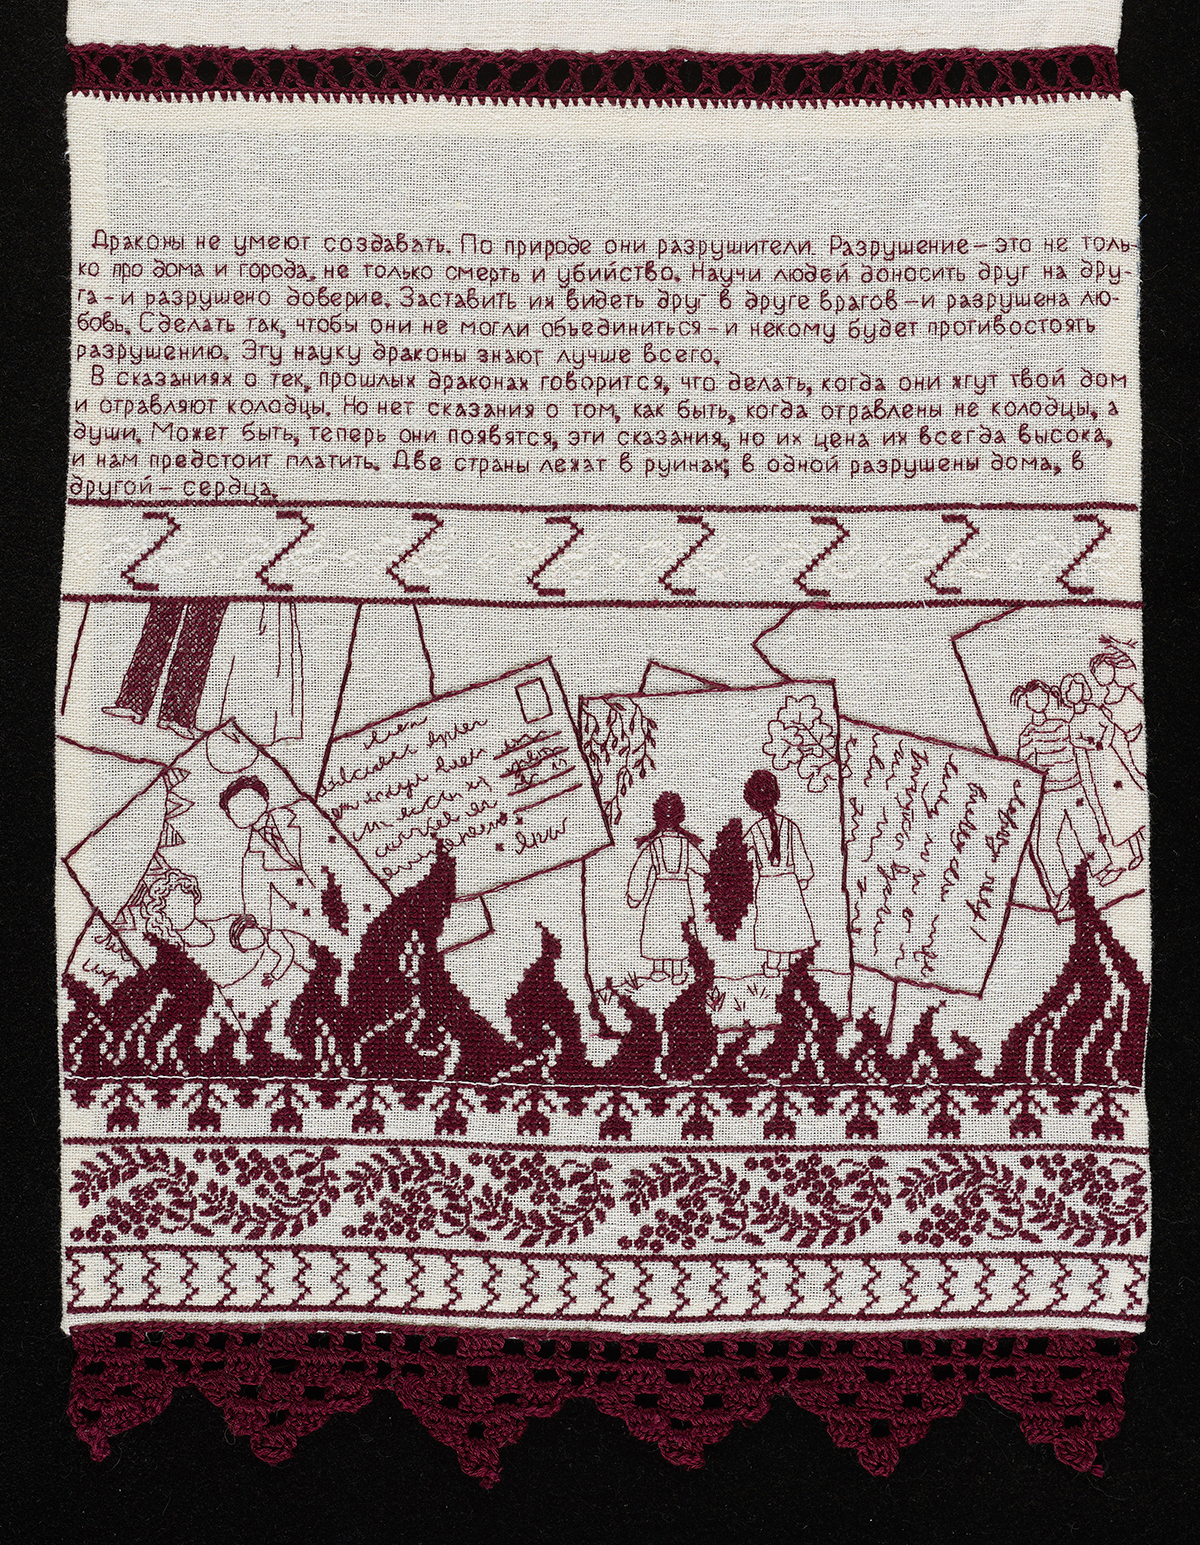 Драконы не умеют создавать. По природе они разрушители. Разрушение – это не толь-
ко про дома и города, не только смерть и убийство. Научи людей доносить друг на дру-
га – и разрушено доверие. Заставить их видеть друг в друге врагов – и разрушена лю-
бовь. Сделать так, чтобы они не могли объединиться – и некому будет противостоять
разрушению. Эту науку драконы знают лучше всего.
В сказаниях о тех, прошлых драконах говорится, что делать, когда они жгут твой дом
и отравляют колодцы. Но нет сказания о том, как быть, когда отравлены не колодцы, а
души. Может быть, теперь они появятся, эти сказания, но их цена их всегда высока,
и нам предстоит платить. Две страны лежат в руинах; в одной разрушены дома, в
другой – сердца.